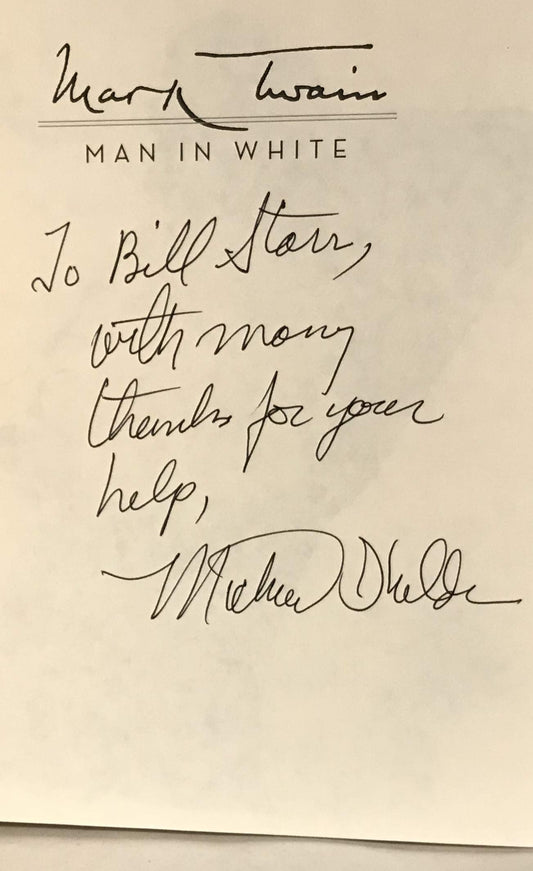 Mark Twain
MAN IN WHITE
To Bill Starr,
with many
thanks for your
help,
Michael Shelden